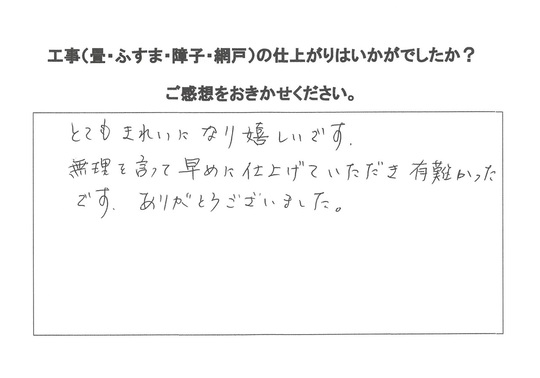 工事(畳・ふすま・障子・網戸)の仕上がりはいかがでしたか？
ご感想をおきかせください。
とてもきれいになり嬉しいです.
無理を言って早めに仕上げていただき有難かった
です. ありがとうございました。